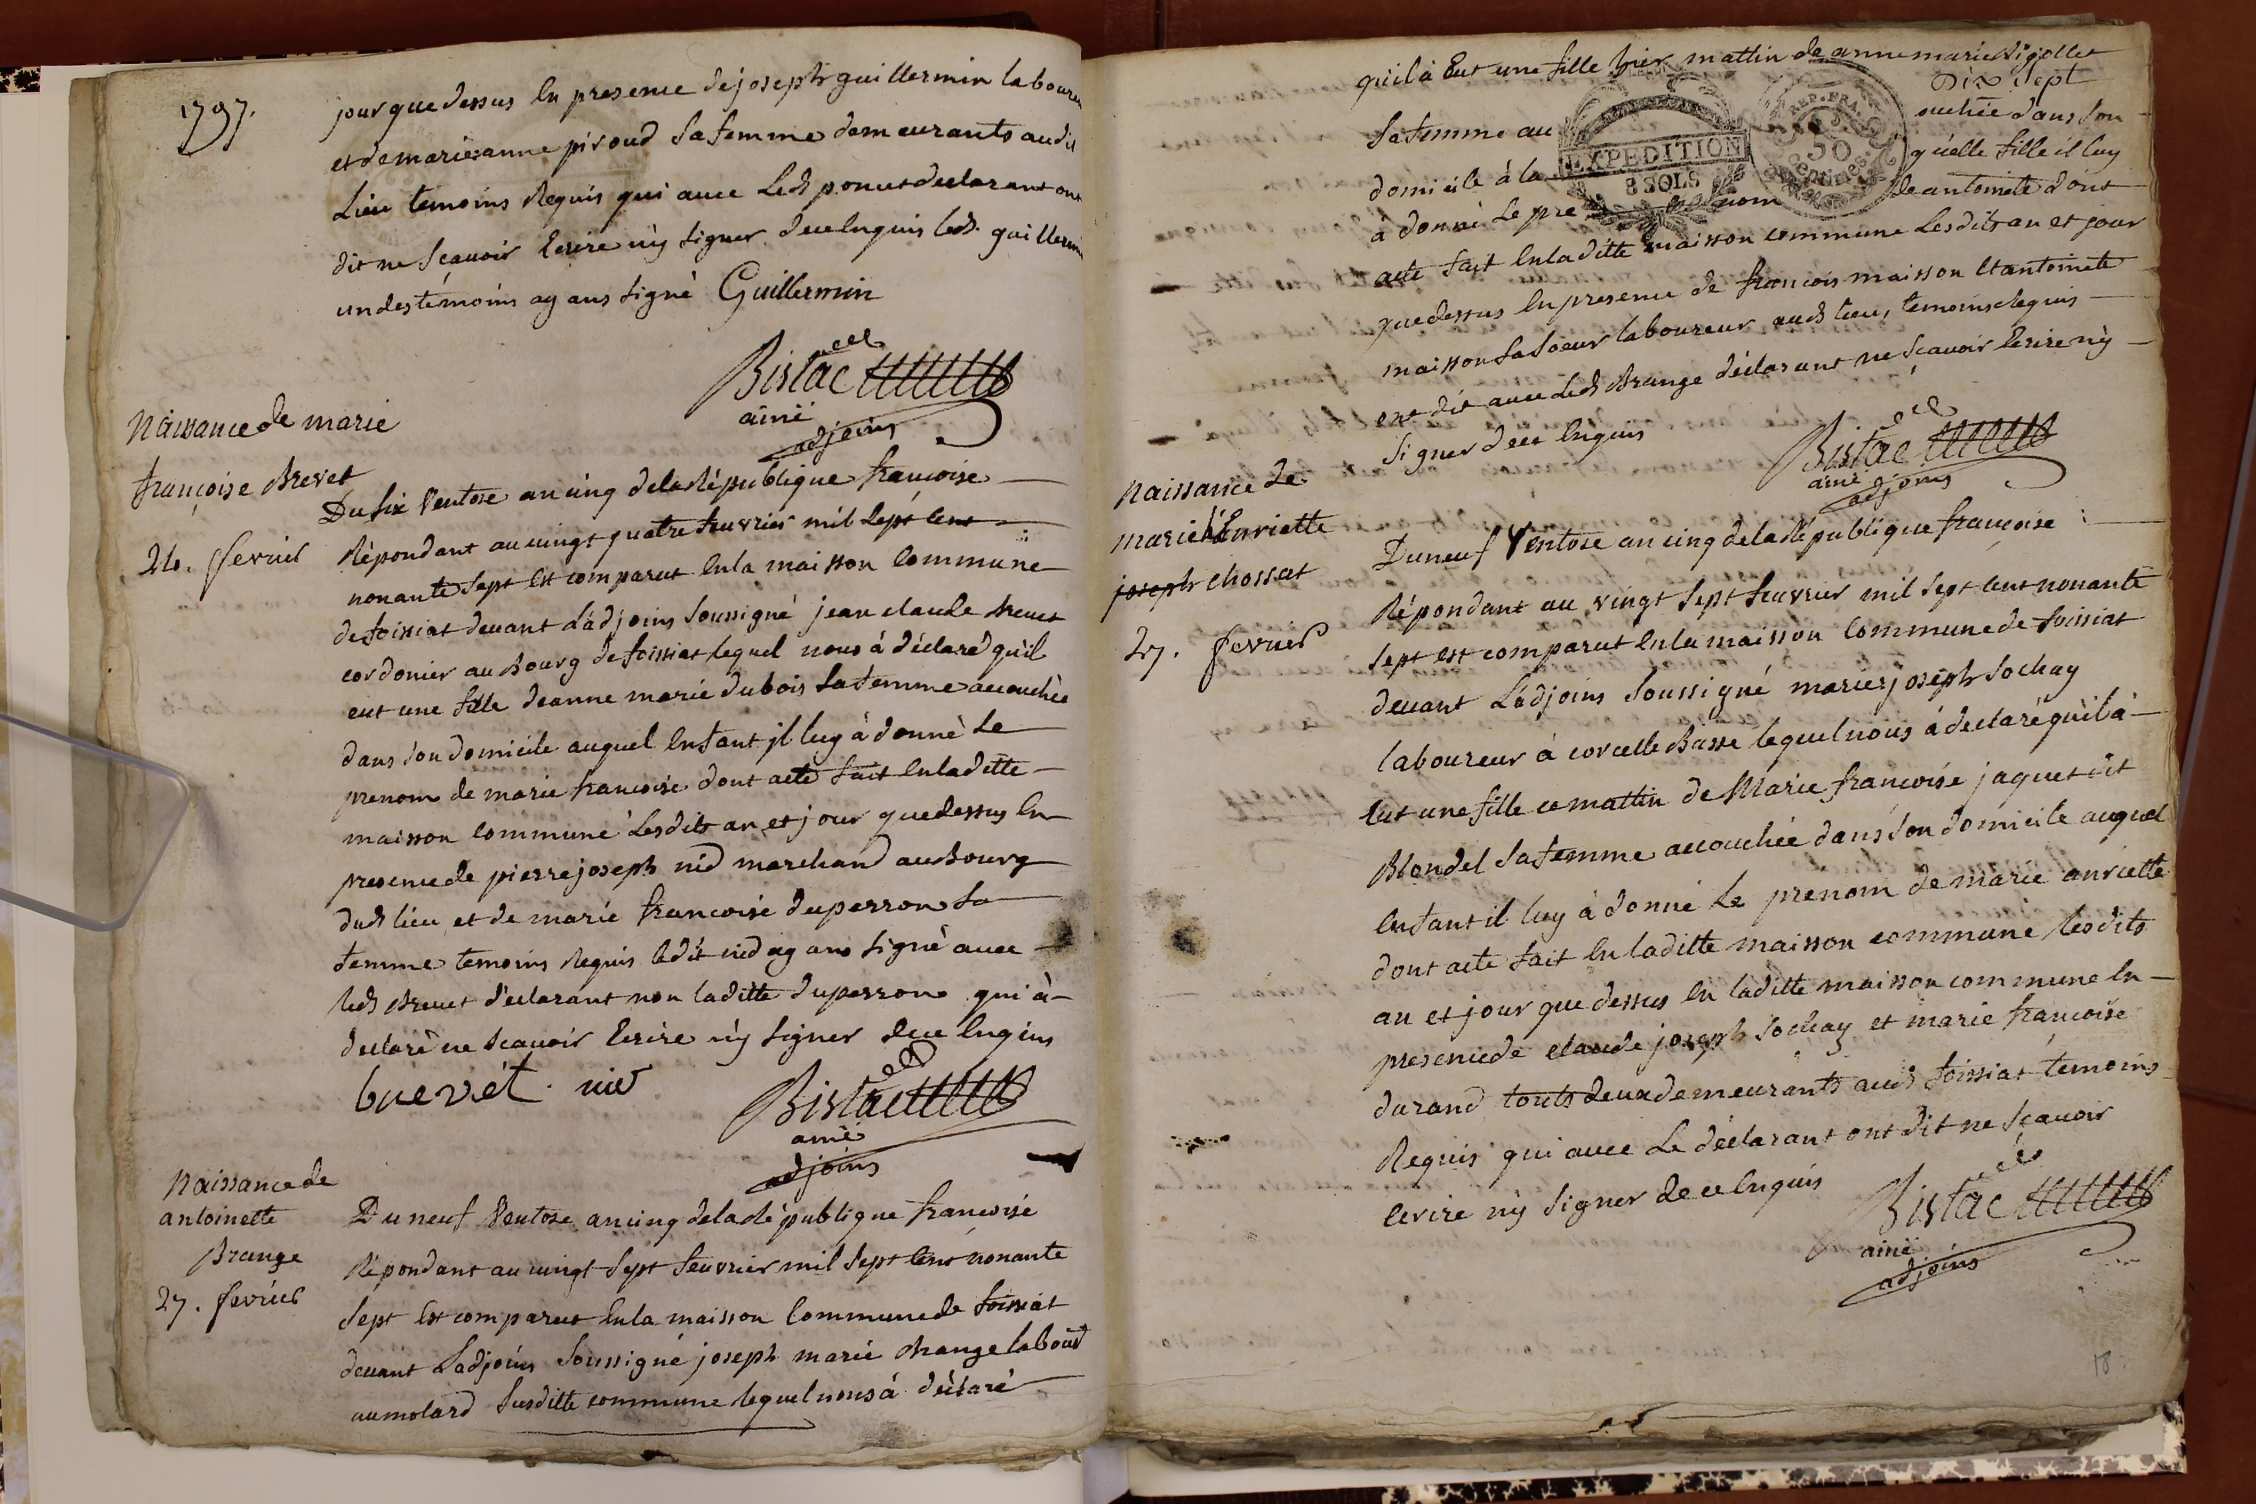 1797.
jour que dessus en presence de joseph guillermin laboureu
et de marie anne piroud sa femme demeurants audit
Lieu temoins Requis qui avec Led declarant ont
dit ne scavoir Ecrire ny signer de ce enquis led. guillermin
un des témoins ayans signé Guillermin
Bistac
ainé
adjoins
Naissance de marie
françoise Brevet
24. fevrier
Du six Ventose an cinq de la République francoise
Répondant au vingt quatre feuvrier mil sept cent
nonante sept Est comparut en la maison Commune
de foissiat devant L'adjoins soussigné jean claude brevet
cordonier au Bourg de foissiat lequel nous à déclaré qu'il
eut une fille deanne marie dubois sa femme accouchée
dans son domicile auquel enfant jl luy à donné Le
prenom de marie francoise dont acte fait en la ditte
maison commune Lesdits an et jour que dessus en
presence de pierre joseph nid marchand au Bourg
dud lieu et de marie francoise duperron sa
femme temoins Requis ledit nid ayans signé avec
led Brevet declarant non laditte duperron qui à
declaré ne scavoir Ecrire ny signer de ce enquis
brevét nid
Bistac
ainé
adjoins
Naissance de
antoinette
Brange
27. fevrier
Du neuf Ventose an cinq de la république francoise
Répondant au vingt sept feuvrier mil sept cent nonante
sept Est comparut en la maison commune de foissiat
devant L'adjoins soussigné joseph marie Brange labour
au molard susditte commune lequel nous à déclaré
qu'il à Eut une fille hier mattin de anne marie Rigollet
Dix sept
sa femme au ouchée dans son
EXPEDITION
8 SOLS
REP. FRA.
50
centimes
domicile à la quelle fille il luy
a donné Le pre nom de antoinete dont
acte fait en la ditte maison commune Lesdits an et jour
que dessus en presence de francois maisson et antoinete
maisson sa soeur laboureur aud lieu, temoins Requis
ont dit avec led Brange déclarant ne scavoir Ecrire ny
signer de ce enquis
Bistac
ainé
adjoins
Naissance de
marie Enriette
joseph chossat
27. fevrier
Du neuf Ventose an cinq de la République francoise
Répondant au vingt sept feuvrier mil sept cent nonante
sept est comparut en la maison Commune de foissiat
devant L'adjoins soussigné marie joseph sochay
laboureur à corcelle Basse lequel nous à declaré qu'il à
Eut une fille ce mattin de Marie francoise jaquet dit
Blondel sa femme accouchée dans son domicile auquel
enfant il luy à donné Le prenom de marie anriette
dont acte fait en laditte maison commune lesdits
an et jour que dessus en laditte maison commune en
presence de claude joseph sochay et marie francoise
durand touts deux demeurants aud foissiat temoins
Requis qui avec Le déclarant ont dit ne scavoir
Ecrire ny signer de ce enquis
Bistac
ainé
adjoins
18